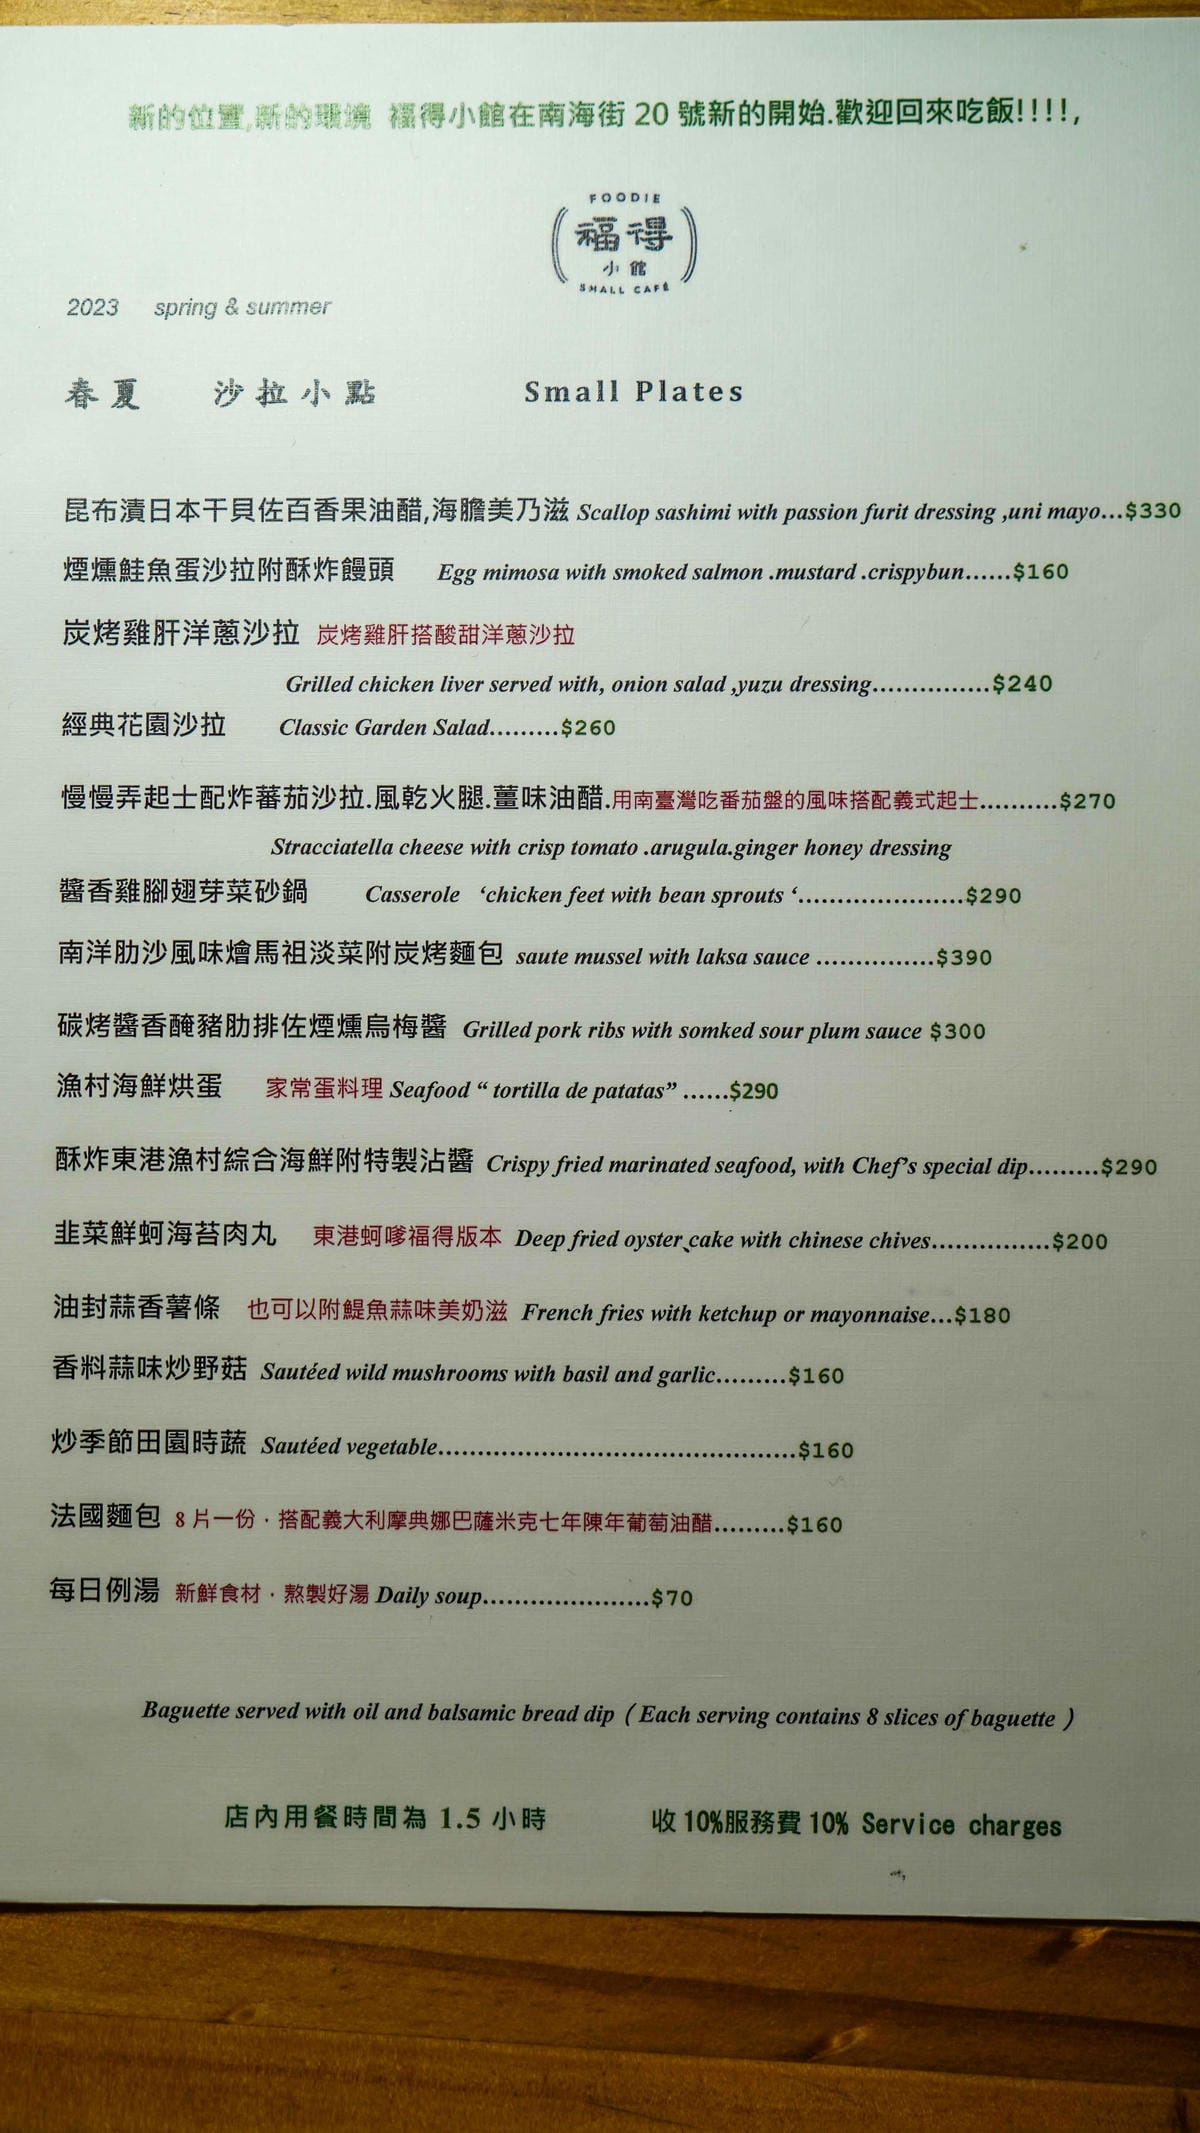 新的位置,新的環境 福得小館在南海街 20 號新的開始.歡迎回來吃飯!!!!,
FOODIE
福得
小館
SMALL CAFÉ
2023 spring & summer
春夏 沙拉小點 Small Plates
昆布漬日本干貝佐百香果油醋,海膽美乃滋 Scallop sashimi with passion furit dressing ,uni mayo...$330
煙燻鮭魚蛋沙拉附酥炸饅頭 Egg mimosa with smoked salmon .mustard .crispybun......$160
炭烤雞肝洋蔥沙拉 炭烤雞肝搭酸甜洋蔥沙拉
Grilled chicken liver served with, onion salad ,yuzu dressing...............$240
經典花園沙拉 Classic Garden Salad.........$260
慢慢弄起士配炸蕃茄沙拉.風乾火腿.薑味油醋.用南臺灣吃番茄盤的風味搭配義式起士..........$270
Stracciatella cheese with crisp tomato .arugula.ginger honey dressing
醬香雞腳翅芽菜砂鍋 Casserole ‘chicken feet with bean sprouts ‘.....................$290
南洋肋沙風味燴馬祖淡菜附炭烤麵包 saute mussel with laksa sauce ...............$390
碳烤醬香醃豬肋排佐煙燻烏梅醬 Grilled pork ribs with somked sour plum sauce $300
漁村海鮮烘蛋 家常蛋料理 Seafood “ tortilla de patatas” ......$290
酥炸東港漁村綜合海鮮附特製沾醬 Crispy fried marinated seafood, with Chef’s special dip.........$290
韭菜鮮蚵海苔肉丸 東港蚵嗲福得版本 Deep fried oyster cake with chinese chives...............$200
油封蒜香薯條 也可以附鯷魚蒜味美奶滋 French fries with ketchup or mayonnaise...$180
香料蒜味炒野菇 Sautéed wild mushrooms with basil and garlic.........$160
炒季節田園時蔬 Sautéed vegetable.............................................$160
法國麵包 8 片一份．搭配義大利摩典娜巴薩米克七年陳年葡萄油醋.........$160
每日例湯 新鮮食材．熬製好湯 Daily soup.....................$70
Baguette served with oil and balsamic bread dip（Each serving contains 8 slices of baguette ）
店內用餐時間為 1.5 小時 收 10%服務費 10% Service charges